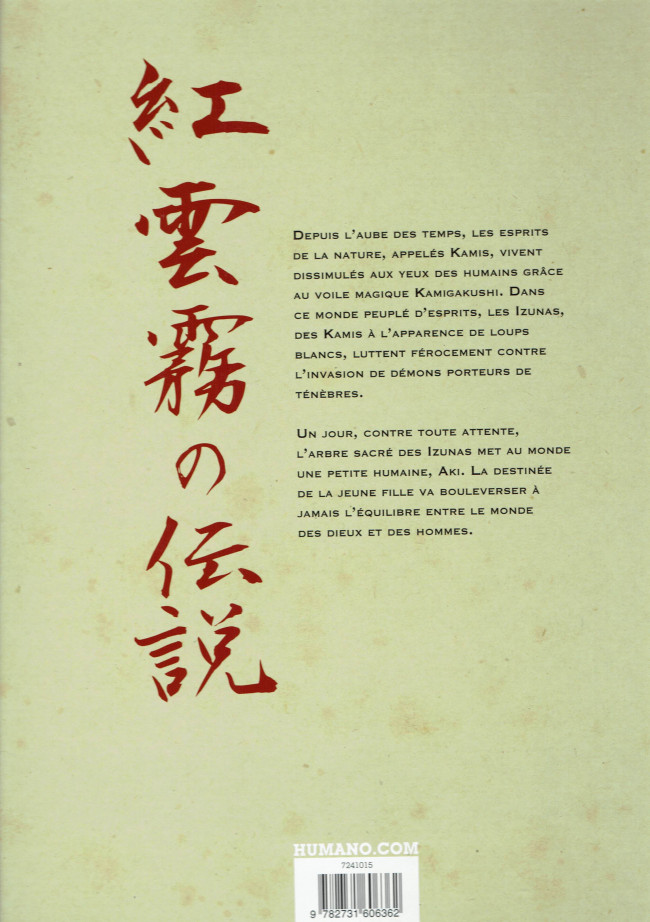 紅雲霧の伝説
DEPUIS L'AUBE DES TEMPS, LES ESPRITS
DE LA NATURE, APPELÉS KAMIS, VIVENT
DISSIMULÉS AUX YEUX DES HUMAINS GRÂCE
AU VOILE MAGIQUE KAMIGAKUSHI. DANS
CE MONDE PEUPLÉ D'ESPRITS, LES IZUNAS,
DES KAMIS À L'APPARENCE DE LOUPS
BLANCS, LUTTENT FÉROCEMENT CONTRE
L'INVASION DE DÉMONS PORTEURS DE
TÉNÈBRES.
UN JOUR, CONTRE TOUTE ATTENTE,
L'ARBRE SACRÉ DES IZUNAS MET AU MONDE
UNE PETITE HUMAINE, AKI. LA DESTINÉE
DE LA JEUNE FILLE VA BOULEVERSER À
JAMAIS L'ÉQUILIBRE ENTRE LE MONDE
DES DIEUX ET DES HOMMES.
HUMANO.COM
7241015
9 782731 606362